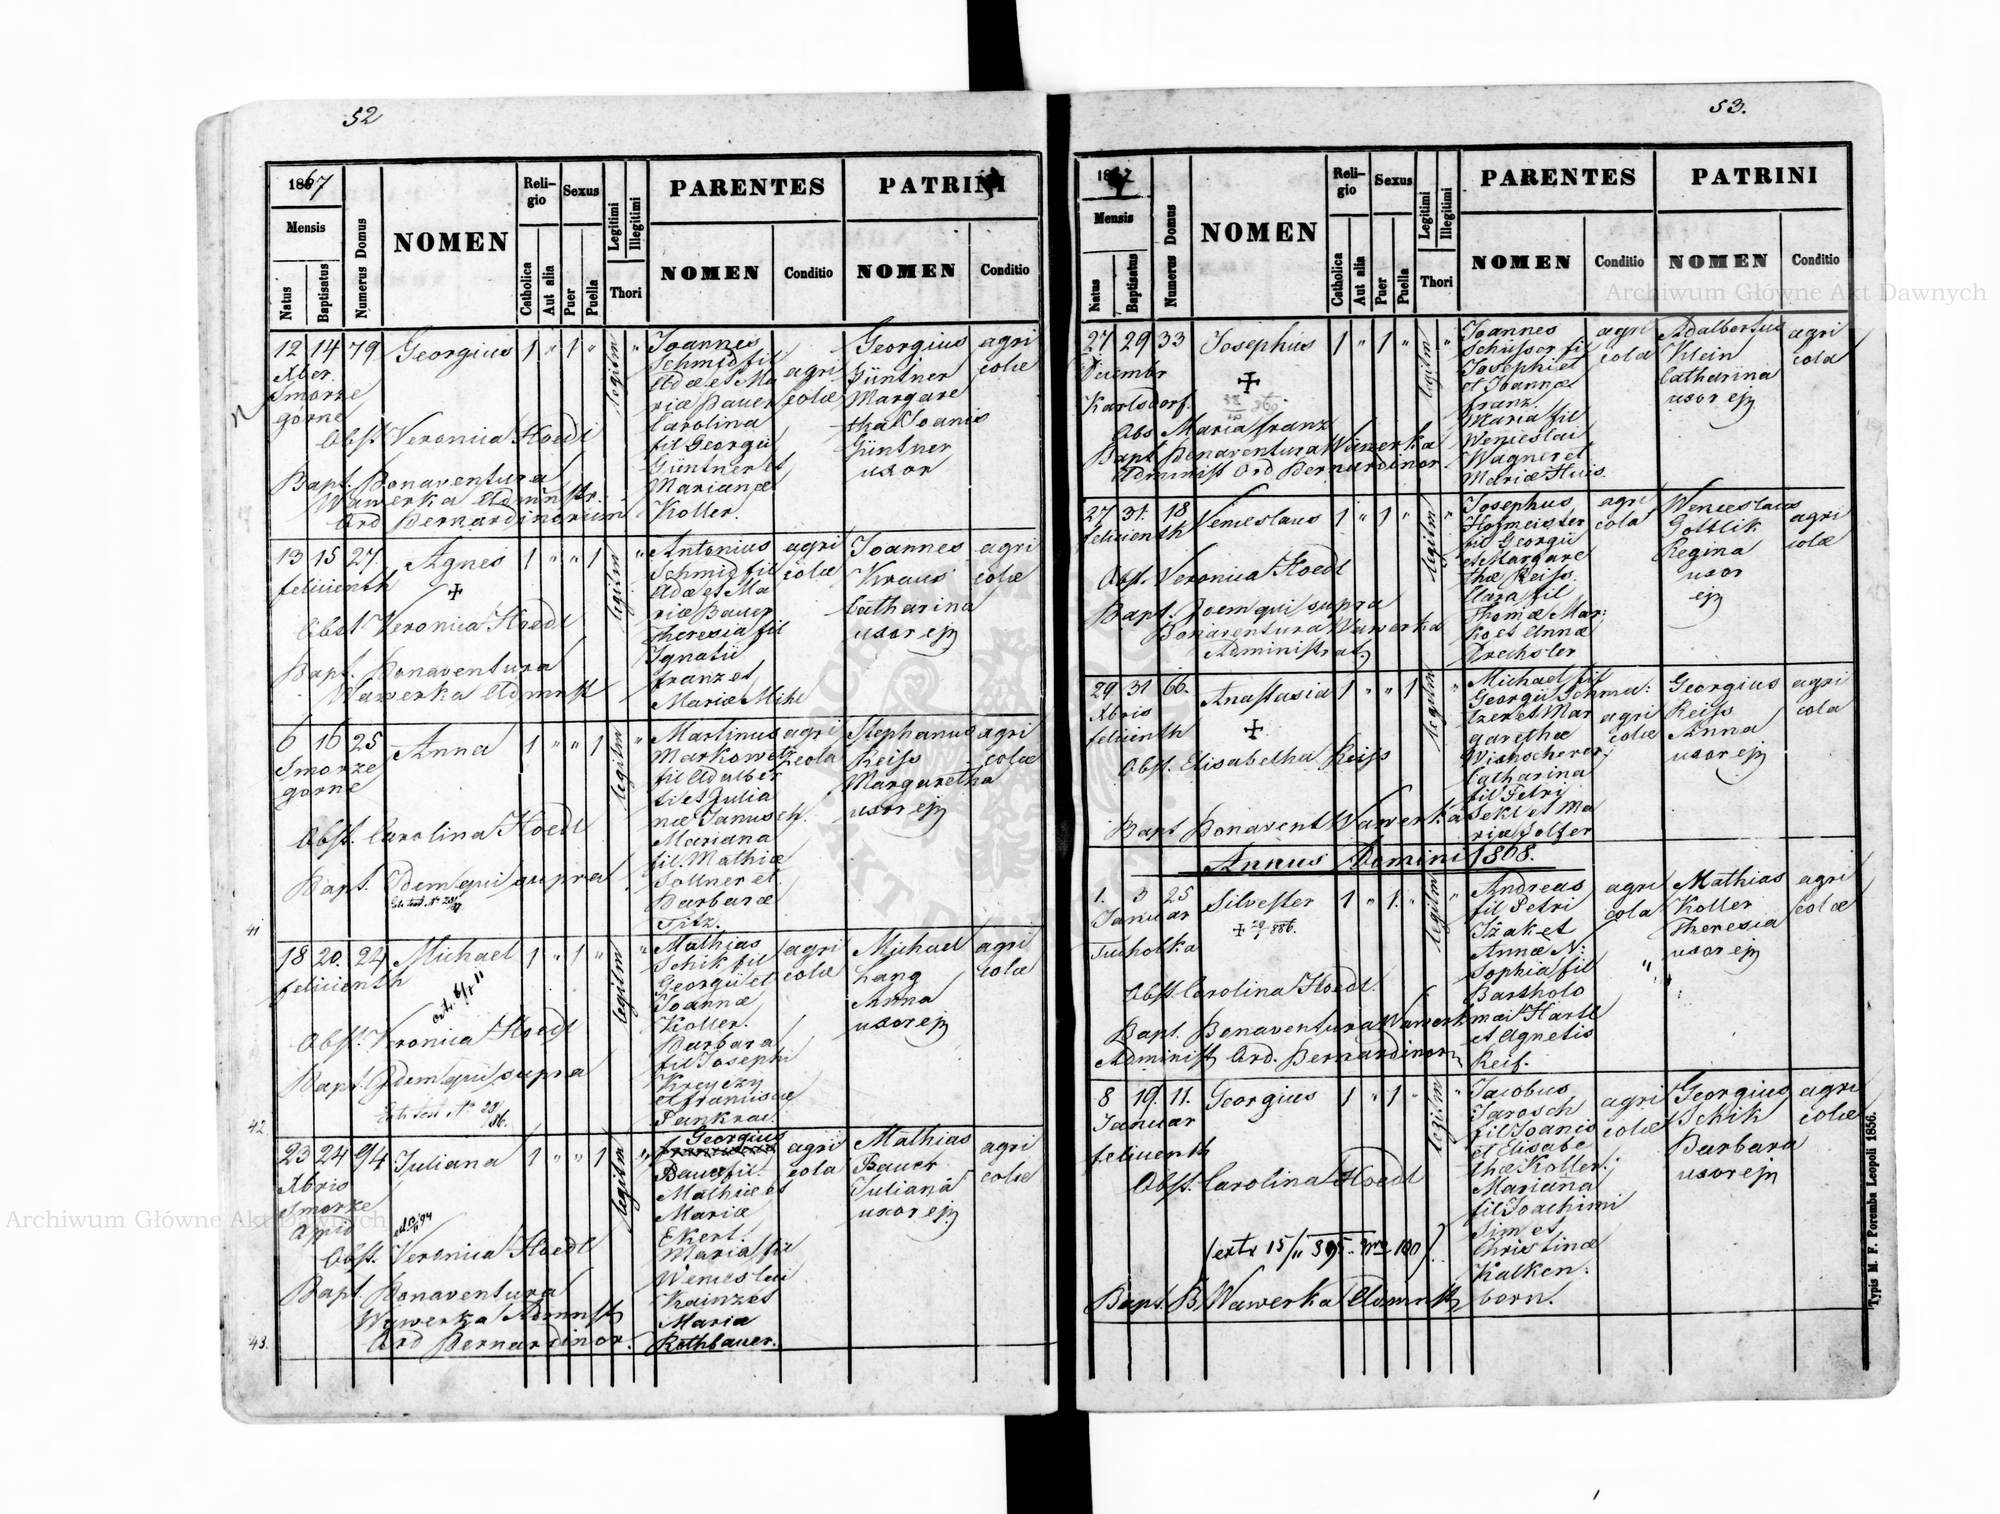 52
1867
Mensis
Natus
Baptisatus
Numerus Domus
NOMEN
Reli-
gio
Catholica
Aut alia
Sexus
Puer
Puella
Legitimi
Illegitimi
Thori
PARENTES
NOMEN
Conditio
PATRINI
NOMEN
Conditio
12 14 79 Georgius 1 " 1 "
Xber
Smorze
gorne
Obst. Veronica Hoedl
Bapt. Bonaventura
Wawerka Administr.
Ord Bernardinorum
legitm
Joannes
Schmid fil
Adæ et Ma
riæ Bauer
Carolina
fil Georgii
Güntner et
Marianæ
Koller.
agri
colæ
Georgius
Güntner
Margare
tha Joanis
Güntner
uxor
agri
colæ
13 15 27. Agnes 1 " " 1
felicienth
Obst Veronica Hoedl
Bapt. Bonaventura
Wawerka Admnst
legitm
Antonius
Schmid fil
Adæ et Ma
riæ Bauer
Theresia fil
Ignatii
Franz et
Mariæ Mihl
agri
colæ
Joannes
Kraus
Catharina
uxor ej
agri
colæ
6 16 25 Anna 1 " " 1
Smorze
gorne
Obst. Carolina Hoedl
Bapt. Idem qui supra
legitm
Martinus
Markowetz
fil Adalber
ti et Julia
næ Janusch.
Mariana
fil. Mathiæ
Sollner et
Barbaræ
Titz.
agri
cola
Stephanus
Reiss
Margaretha
uxor ej
agri
colæ
41
18 20. 24 Michael 1 " 1 "
felicienth
Obst. Veronica Hoedl
Bapt. Idem qui supra
legitm
Mathias
Schik fil
Georgii et
Joannæ
Koller.
Barbara
fil Josephi
Kreyczy
et Franciscæ
Pankraz.
agri
colæ
Michael
Lang
Anna
uxor ej
agri
colæ
42.
23 24 94 Juliana 1 " " 1
Xbris
Smorze
Obst. Veronica Hoedl
Bapt. Bonaventura
Wawerka Admnst
Ord Bernardinor.
legitm
Georgius
Bauer fil
Mathiæ et
Mariæ
Ekert.
Maria fil
Wenceslai
Kainz et
Mariæ
Rothbauer.
agri
cola
Mathias
Bauer
Juliana
uxor ej
agri
colæ
43.
53.
Mensis
Natus
Baptisatus
Numerus Domus
NOMEN
Reli-
gio
Catholica
Aut alia
Sexus
Puer
Puella
Legitimi
Illegitimi
Thori
PARENTES
NOMEN
Conditio
PATRINI
NOMEN
Conditio
27 29 33 Josephus 1 " 1 "
Decembr
Karlsdorf.
Obs Maria Franz
Bapt Bonaventura Wawerka
Administ Ord Bernardinor.
legitm
Joannes
Schüsser fil
Josephi et
et Joannæ
Franz.
Maria fil
Wenceslai
Wagner et
Mariæ Huis.
agri
cola
Adalbertus
Klein
Catharina
uxor ej
agri
cola
27 31. 18 Venceslaus 1 " 1 "
felicienth
Obst. Veronica Hoedl
Bapt. Idem qui supra
Bonaventura Wawerka
Administrat.
legitm
Josephus
Hofmeister
fil Georgii
et Margare
thæ Reiss.
Clara fil
Thomæ Mar:
ko et Annæ
Drechsler
agri
cola
Wenceslaus
Gottlik
Regina
uxor
ej
agri
colæ
29 31 66. Anastasia 1 " " 1
Xbris
felicienth
Obst. Elisabetha Reiss
Bapt Bonavent Wawerka
legitm
Michael fil
Georgii Schma:
tzer et Mar
garethæ
Wischscherer;
Catharina
fil Petri
Sekl et Ma
riæ Solfer
agri
colæ
Georgius
Reiss
Anna
uxor ej
agri
cola
Annus Domini 1868.
1. 3 25 Silvester 1 " 1. "
Januar
Tucholka
Obst Carolina Hoedl.
Bapt. Bonaventura Wawerk
Administ Ord. Bernardinor
legitm
Andreas
fil Petri
Izak et
Annæ N:
Sophia fil
Bartholo
mæi Hartl
et Agnetis
Reif.
agri
cola
Mathias
Koller
Theresia
uxor ej
agri
colæ
8 19. 11. Georgius 1 " 1 "
Januar
felicienth
Obst. Carolina Hoedl
Bapt. B. Wawerka Admnst
legitm
Jacobus
Jarosch
fil Joanis
et Elisabe
thæ Koller;
Mariana
fil Joachimi
Sim et
Christinæ
Kalken:
born.
agri
colæ
Georgius
Schik
Barbara
uxor ej
agri
colæ
Typis M. F. Poremba Leopoli 1856.
Archiwum Główne Akt Dawnych
Archiwum Główne Akt Dawnych